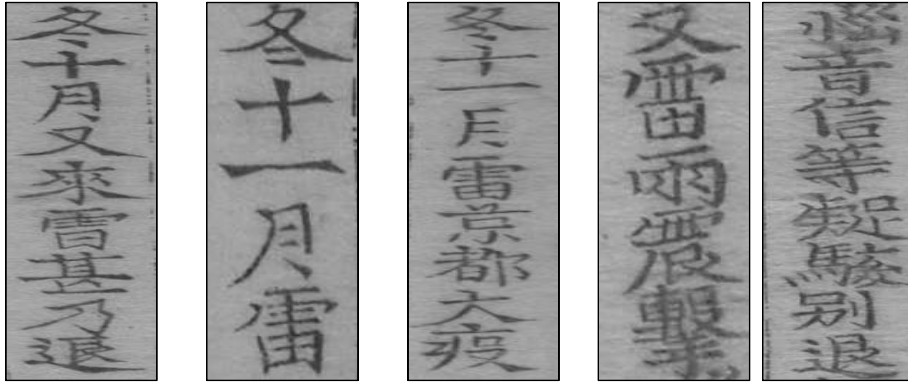 冬十月又來雪甚乃退
冬十一月雷
冬十一月雷京都大疫
又雷雨震擊
惱音信等疑駭別退